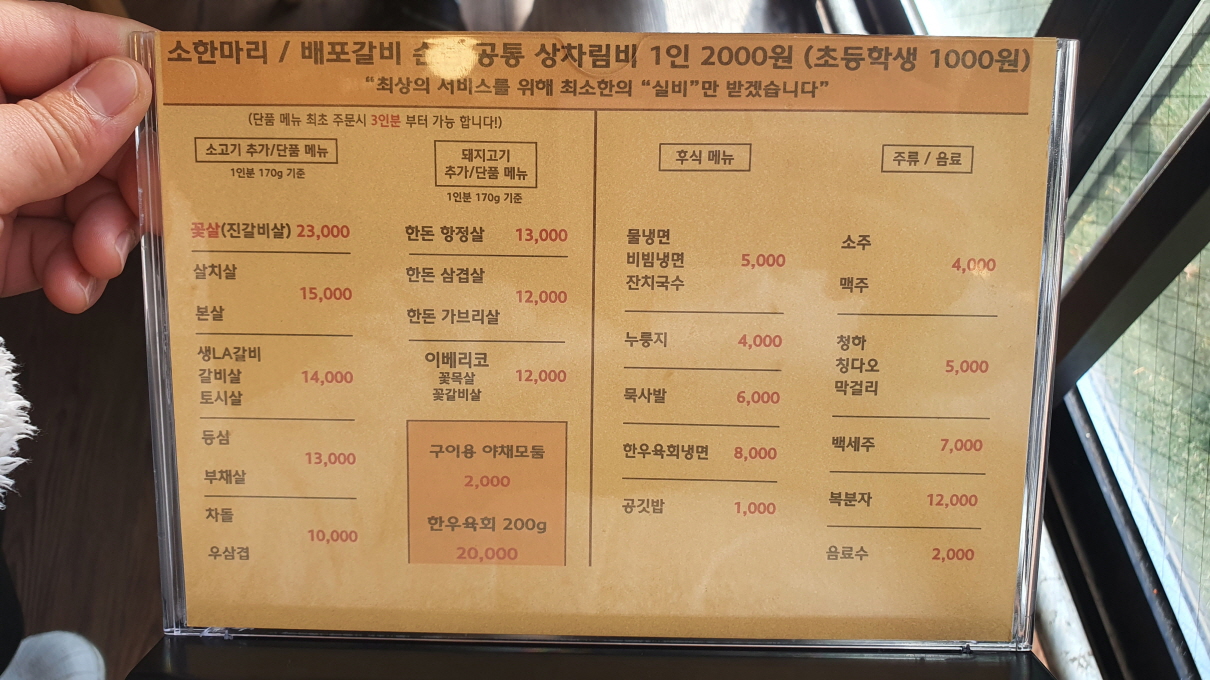 소한마리 / 배포갈비 공통 상차림비 1인 2000원 (초등학생 1000원)
“최상의 서비스를 위해 최소한의 “실비”만 받겠습니다”
(단품 메뉴 최초 주문시 3인분 부터 가능 합니다!)
소고기 추가/단품 메뉴
1인분 170g 기준
꽃살(진갈비살) 23,000
살치살
15,000
본살
생LA갈비
갈비살 14,000
토시살
등심
13,000
부채살
차돌
10,000
우삼겹
돼지고기
추가/단품 메뉴
1인분 170g 기준
한돈 항정살 13,000
한돈 삼겹살
12,000
한돈 가브리살
이베리코
꽃목살 12,000
꽃갈비살
구이용 야채모둠
2,000
한우육회 200g
20,000
후식 메뉴
물냉면
비빔냉면 5,000
잔치국수
누룽지 4,000
묵사발 6,000
한우육회냉면 8,000
공깃밥 1,000
주류 / 음료
소주
4,000
맥주
청하
칭다오 5,000
막걸리
백세주 7,000
복분자 12,000
음료수 2,000